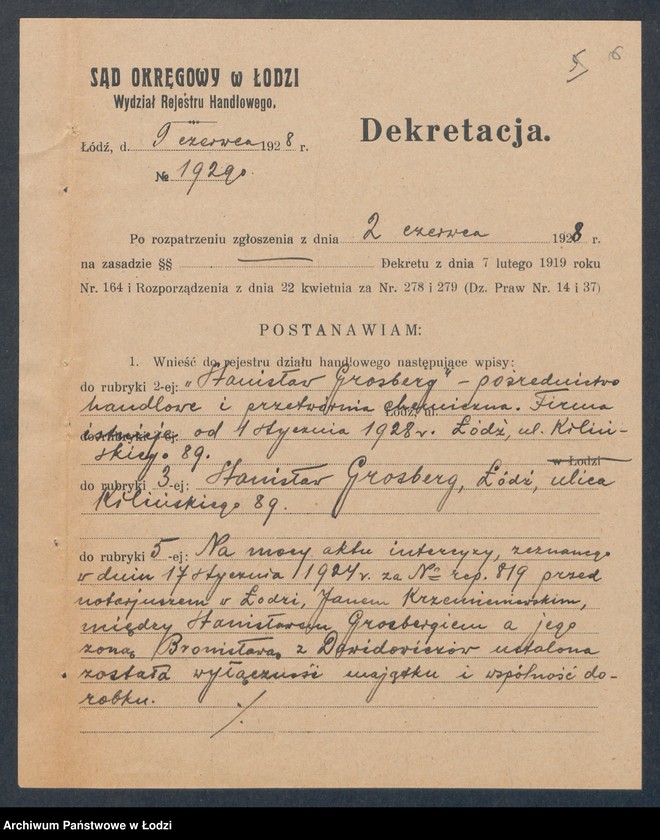 5 6
SĄD OKRĘGOWY w ŁODZI
Wydział Rejestru Handlowego.
Dekretacja.
Łódź, d. 9 czerwca 1928 r.
№ 19290.
Po rozpatrzeniu zgłoszenia z dnia 2 czerwca 1928 r.
na zasadzie §§ — Dekretu z dnia 7 lutego 1919 roku
Nr. 164 i Rozporządzenia z dnia 22 kwietnia za Nr. 278 i 279 (Dz. Praw Nr. 14 i 37)
POSTANAWIAM:
1. Wnieść do rejestru działu handlowego następujące wpisy:
do rubryki 2-ej: "Stanisław Grosberg" – pośrednictwo
handlowe i przetwórnia chemiczna. Firma
istnieje od 1 stycznia 1928 r. Łódź, ul. Kiliń-
skiego 89.
w Łodzi
do rubryki 3-ej: Stanisław Grosberg, Łódź, ulica
Kilińskiego 89.
do rubryki 5-ej: Na mocy aktu intercyzy, zeznanego
w dniu 17 stycznia 1924 r. za № rep. 819 przed
notarjuszem w Łodzi, Janem Krzemieniewskim,
między Stanisławem Grosbergiem a jego
żoną Bronisławą z Dawidowiczów ustalona
została wyłączność majątku i wspólność do-
robku.
Archiwum Państwowe w Łodzi